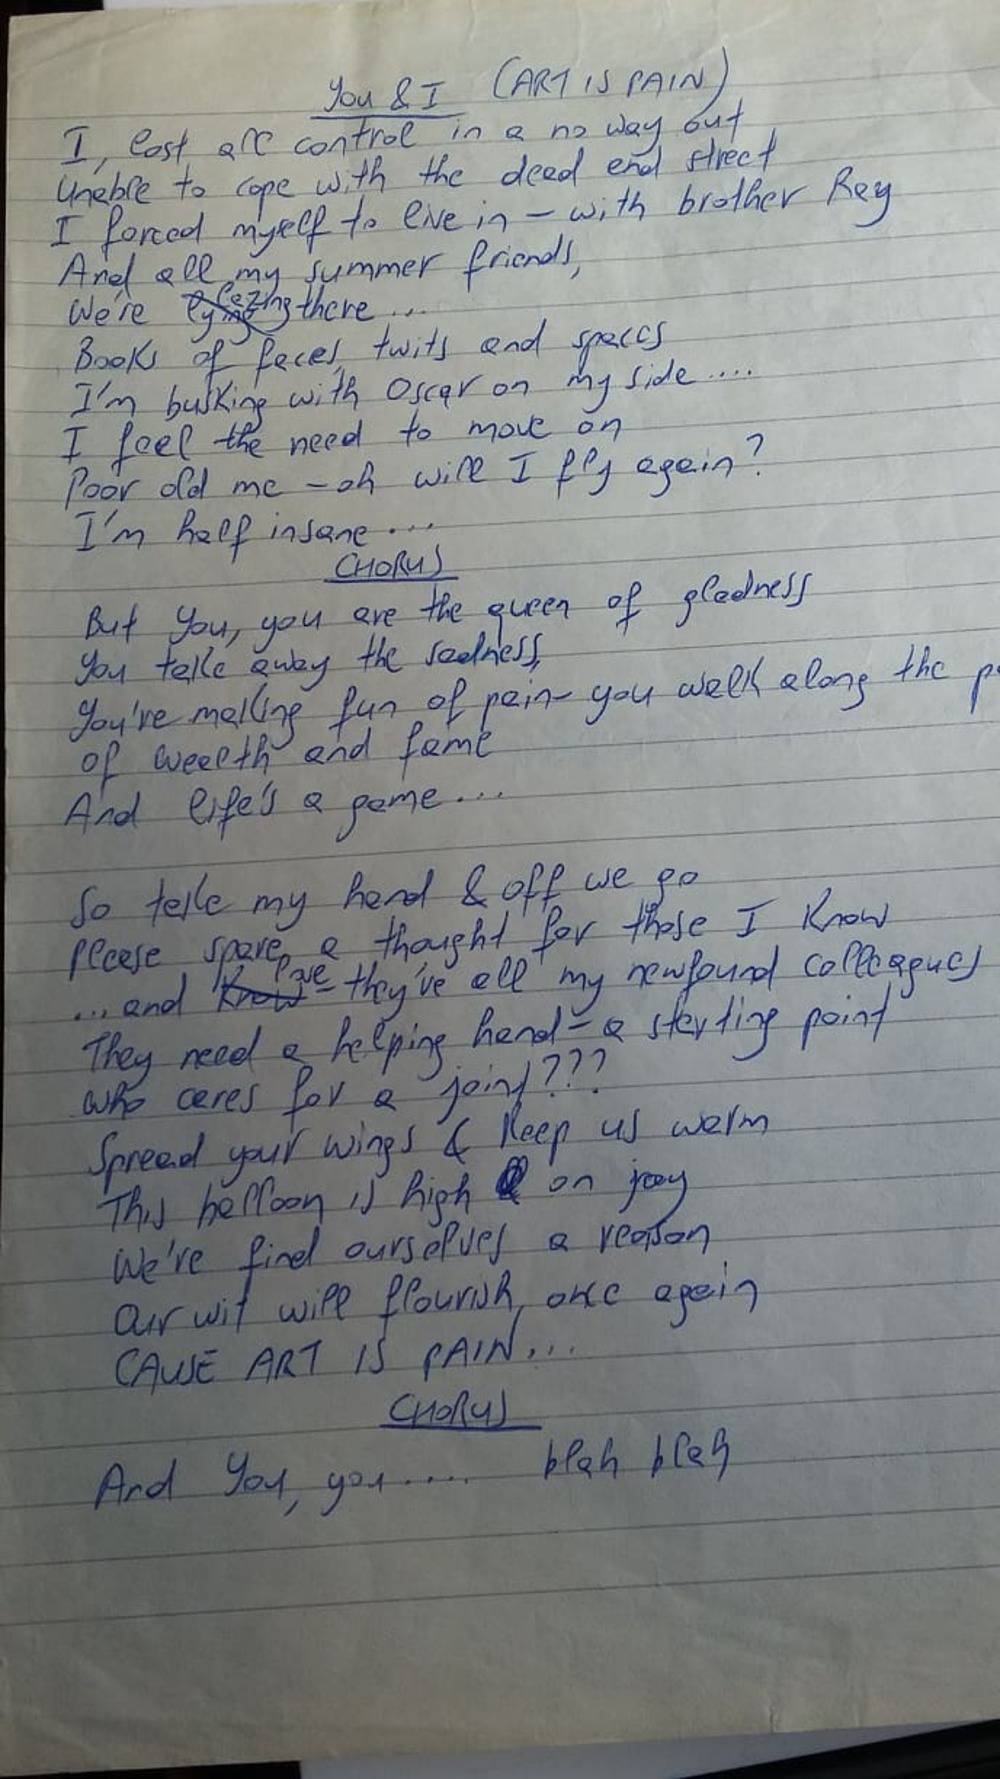 You & I (ART IS PAIN)
I, lost all control in a no way out
Unable to cope with the dead end street
I forced myself to live in - with brother Ray
And all my summer friends,
We're lazing there ...
Books of faces, twits and spaces
I'm busking with Oscar on my side ....
I feel the need to move on
Poor old me - oh will I fly again?
I'm half insane ...
CHORUS
But You, you are the queen of gladness
You take away the sadness,
You're making fun of pain - you walk along the
of wealth and fame
And life's a game ...
So take my hand & off we go
Please spare a thought for those I know
... and love - they've all my newfound colleagues
They need a helping hand - a starting point
Who cares for a joint???
Spread your wings & keep us warm
This balloon is high on joy
We're find ourselves a reason
Our wit will flourish, once again
CAUSE ART IS PAIN ...
CHORUS
And You, you .... blah blah